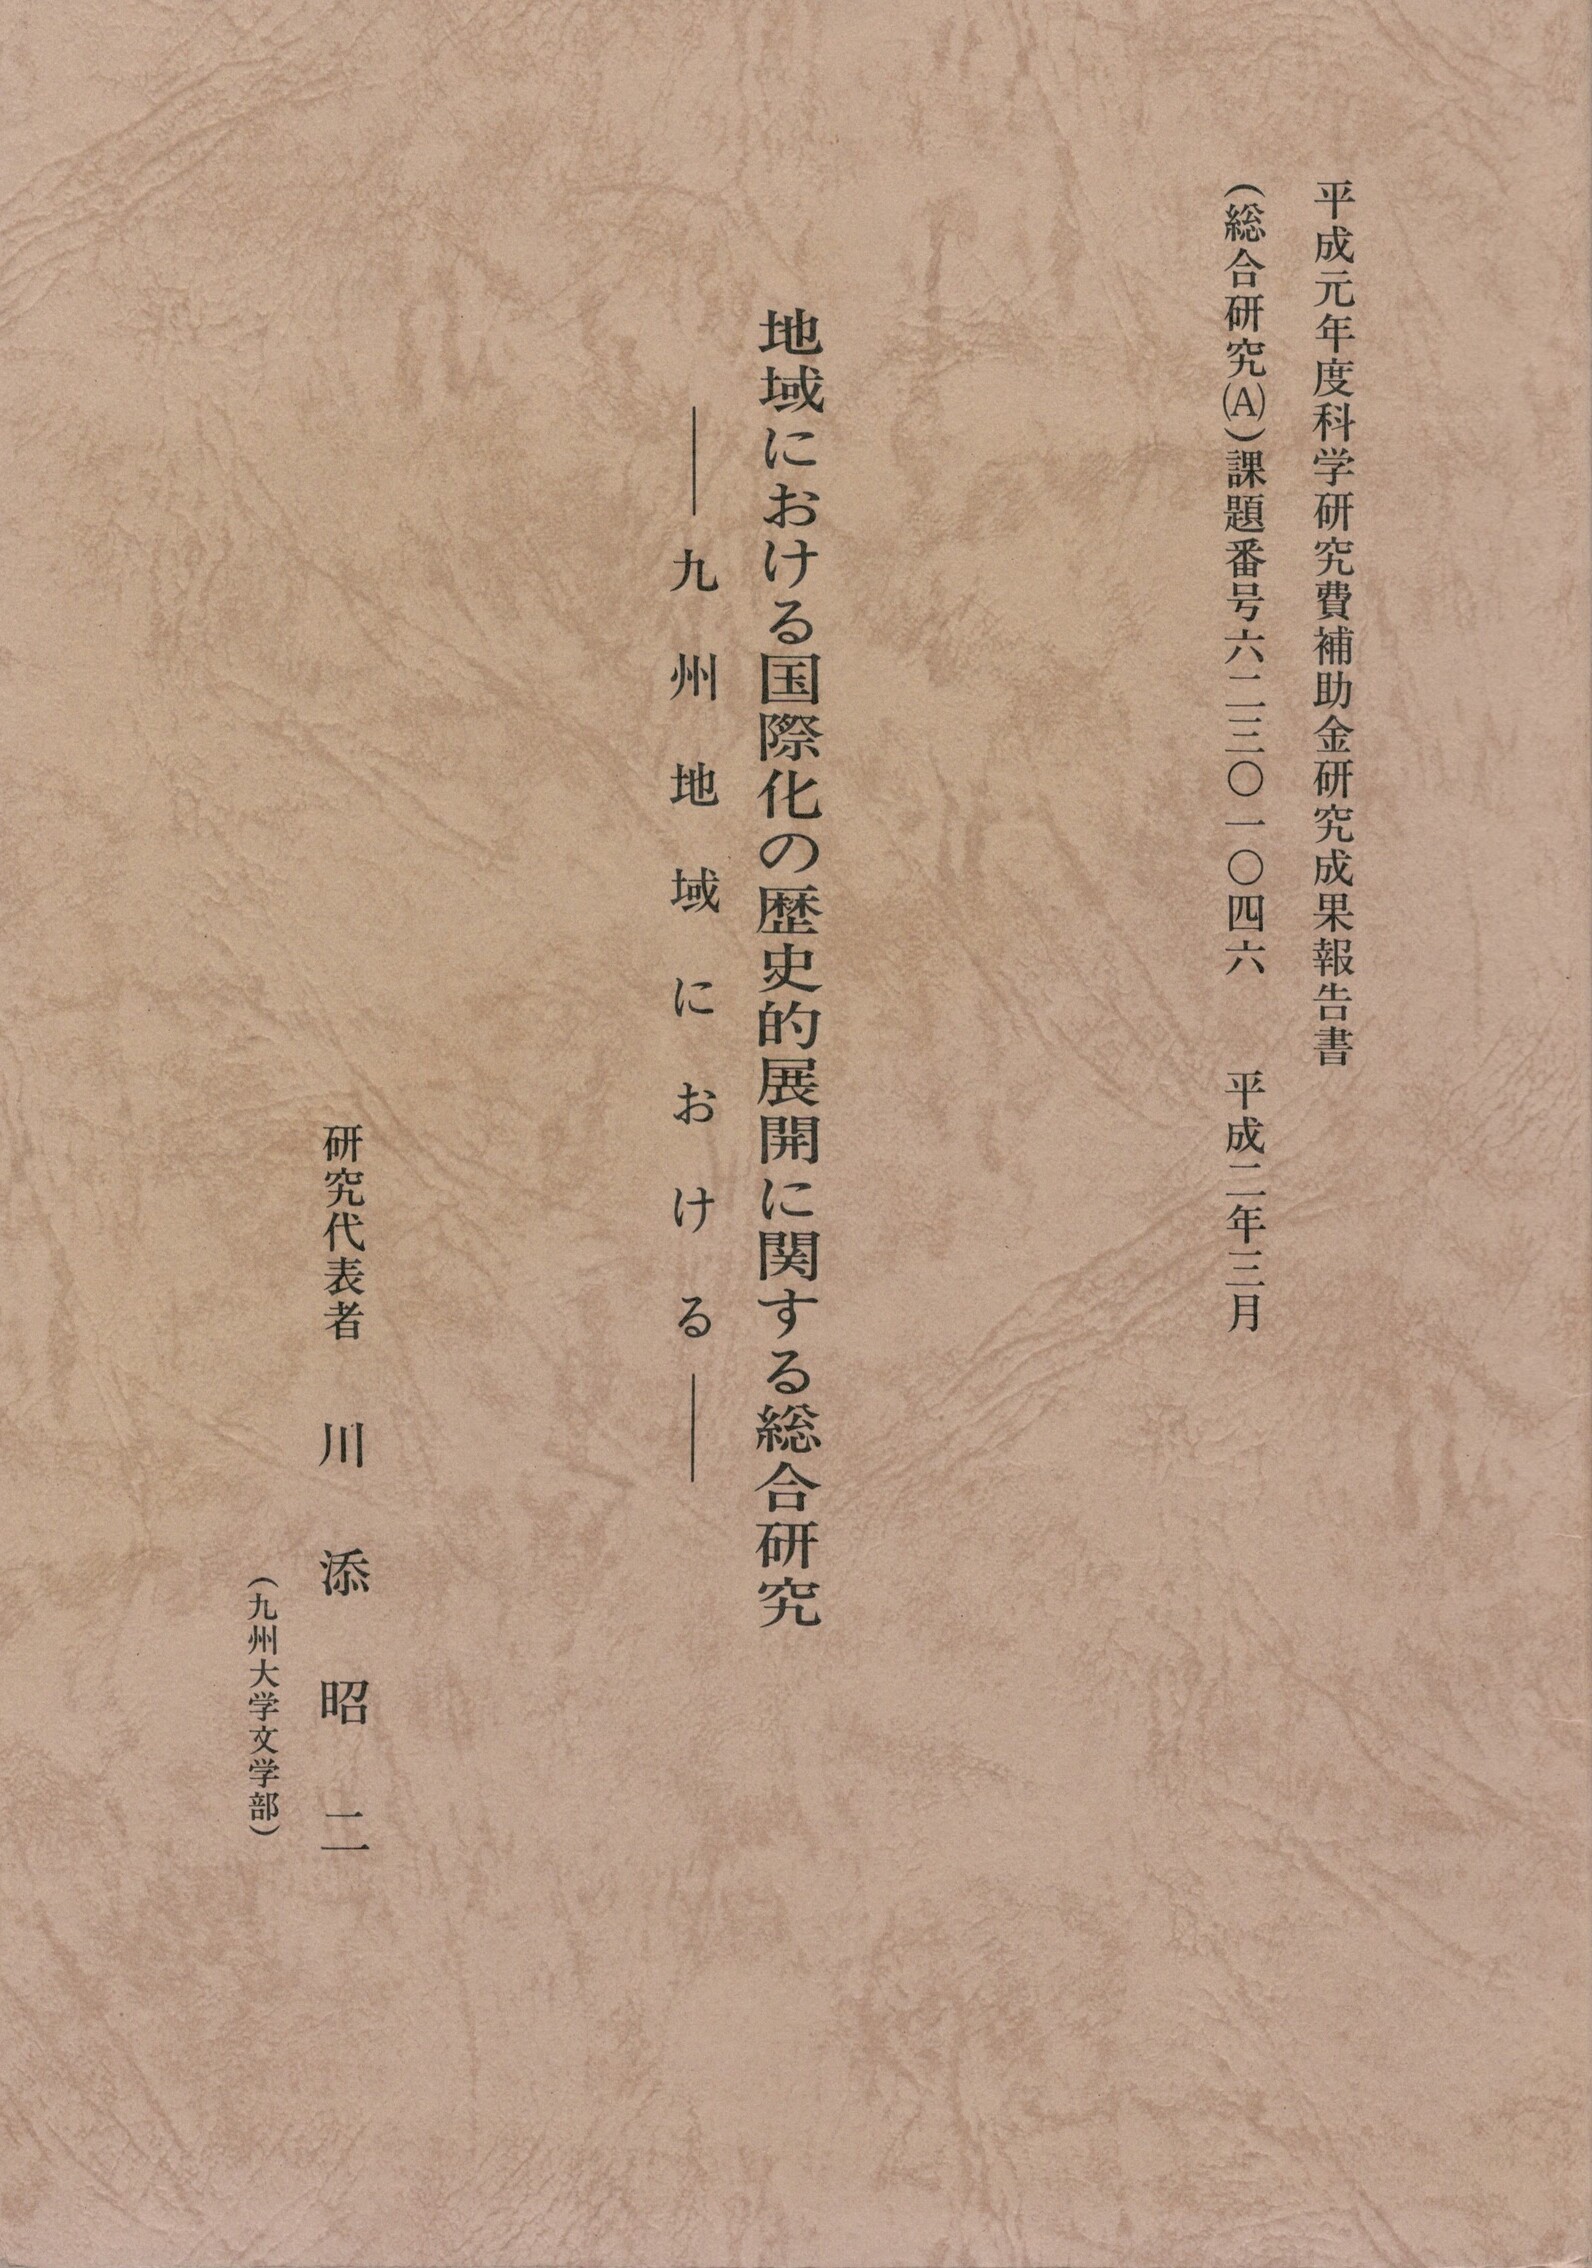 平成元年度科学研究費補助金研究成果報告書
(総合研究(A))課題番号六二三〇一〇四六　平成二年三月
地域における国際化の歴史的展開に関する総合研究
――九州地域における――
研究代表者　川添昭二
(九州大学文学部)